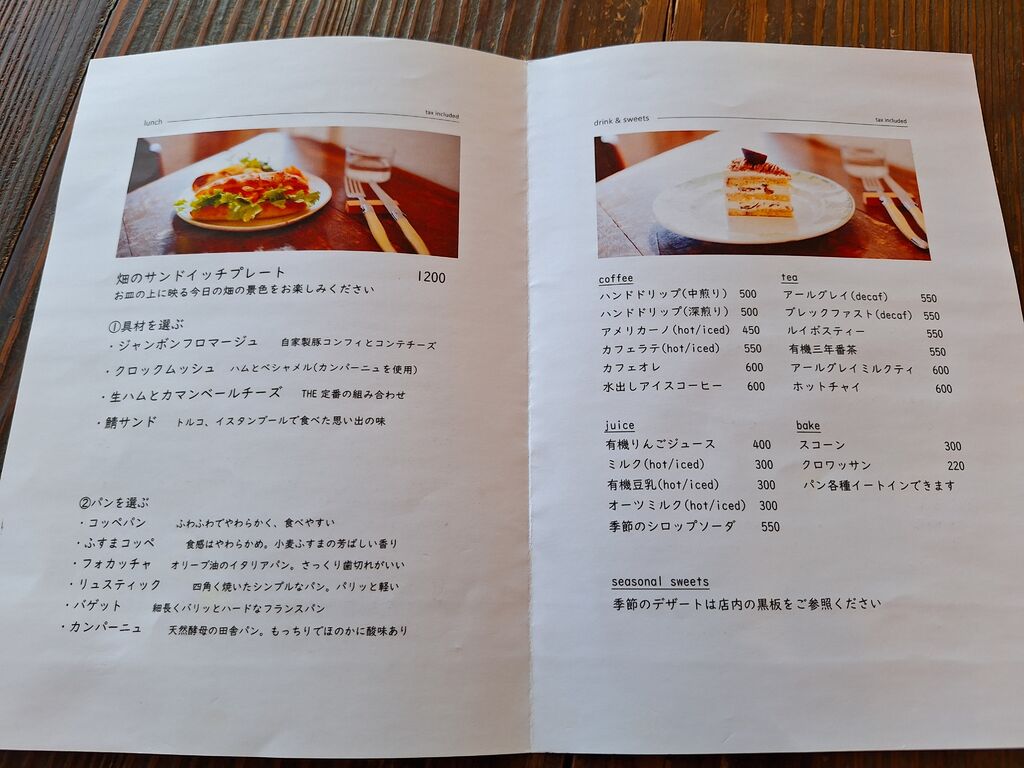 lunch
tax included
畑のサンドイッチプレート 1200
お皿の上に映る今日の畑の景色をお楽しみください
①具材を選ぶ
・ジャンボンフロマージュ 自家製豚コンフィとコンテチーズ
・クロックムッシュ ハムとベシャメル(カンパーニュを使用)
・生ハムとカマンベールチーズ THE 定番の組み合わせ
・鯖サンド トルコ、イスタンブールで食べた思い出の味
②パンを選ぶ
・コッペパン ふわふわでやわらかく、食べやすい
・ふすまコッペ 食感はやわらかめ。小麦ふすまの芳ばしい香り
・フォカッチャ オリーブ油のイタリアパン。さっくり歯切れがいい
・リュスティック 四角く焼いたシンプルなパン。パリッと軽い
・バゲット 細長くバリッとハードなフランスパン
・カンパーニュ 天然酵母の田舎パン。もっちりでほのかに酸味あり
drink & sweets
tax included
coffee
ハンドドリップ(中煎り) 500
ハンドドリップ(深煎り) 500
アメリカーノ(hot/iced) 450
カフェラテ(hot/iced) 550
カフェオレ 600
水出しアイスコーヒー 600
tea
アールグレイ(decaf) 550
ブレックファスト(decaf) 550
ルイボスティー 550
有機三年番茶 550
アールグレイミルクティ 600
ホットチャイ 600
juice
有機りんごジュース 400
ミルク(hot/iced) 300
有機豆乳(hot/iced) 300
オーツミルク(hot/iced) 300
季節のシロップソーダ 550
bake
スコーン 300
クロワッサン 220
パン各種イートインできます
seasonal sweets
季節のデザートは店内の黒板をご参照ください